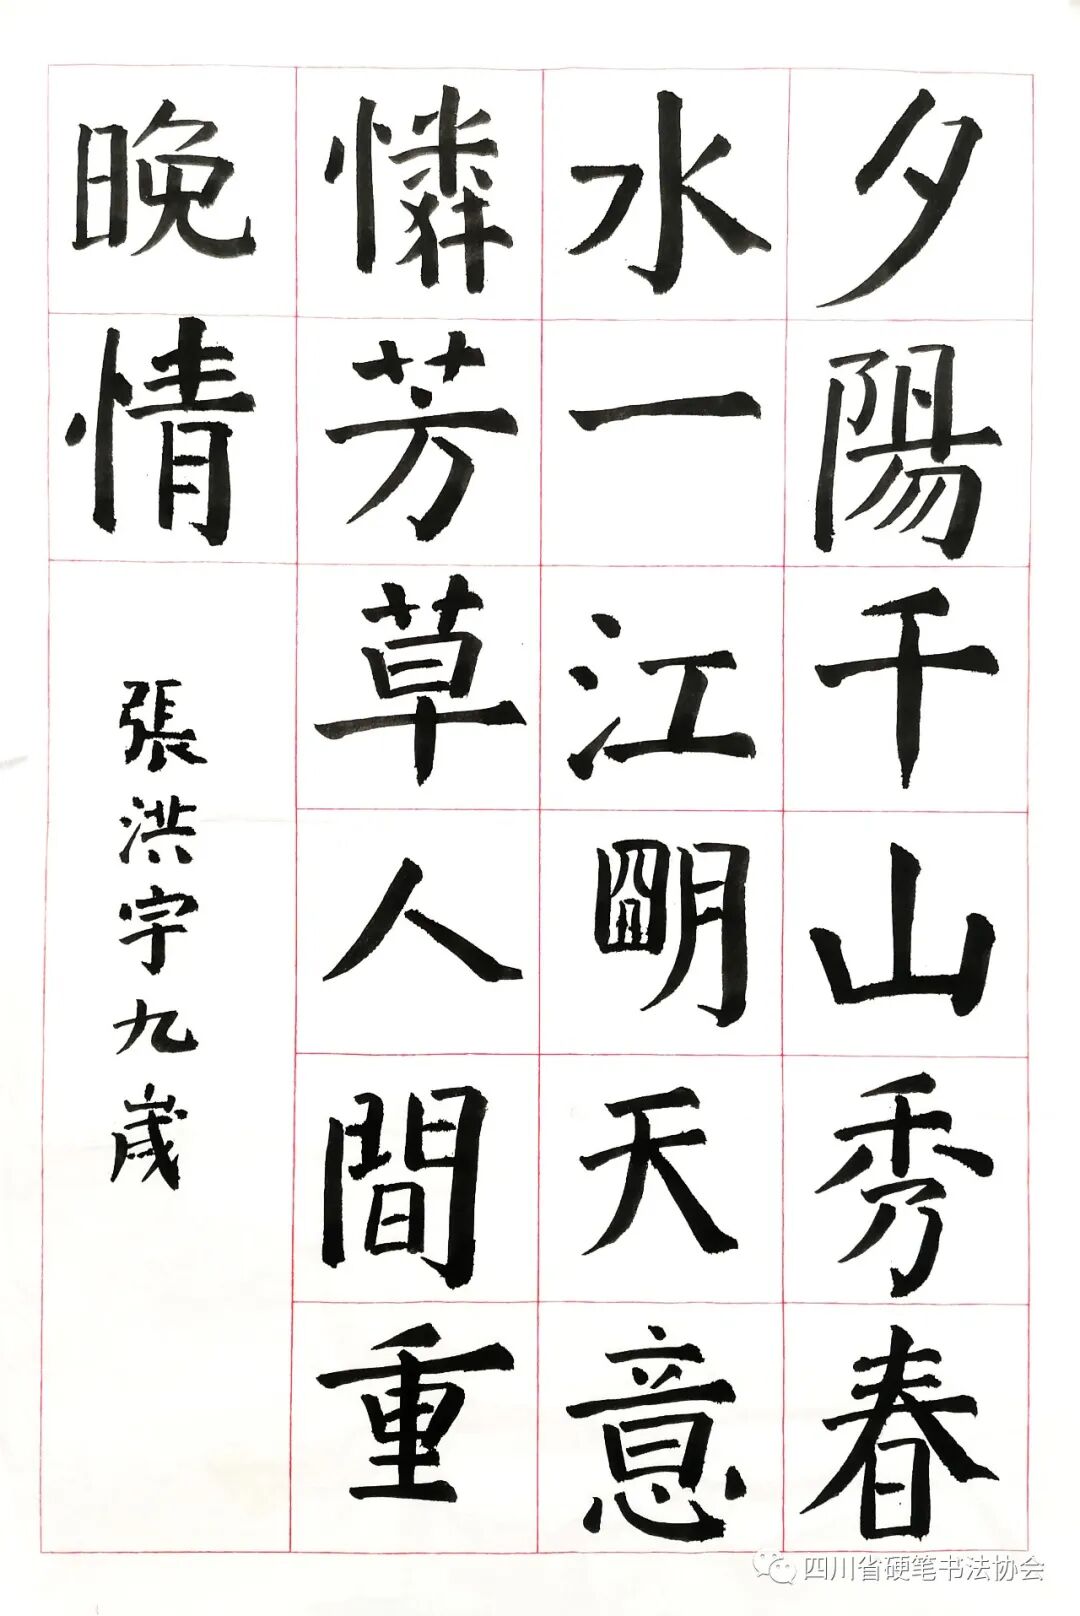 夕陽千山秀春
水一江朙天意
憐芳草人間重
晚情
張洪宇九嵗
四川省硬笔书法协会